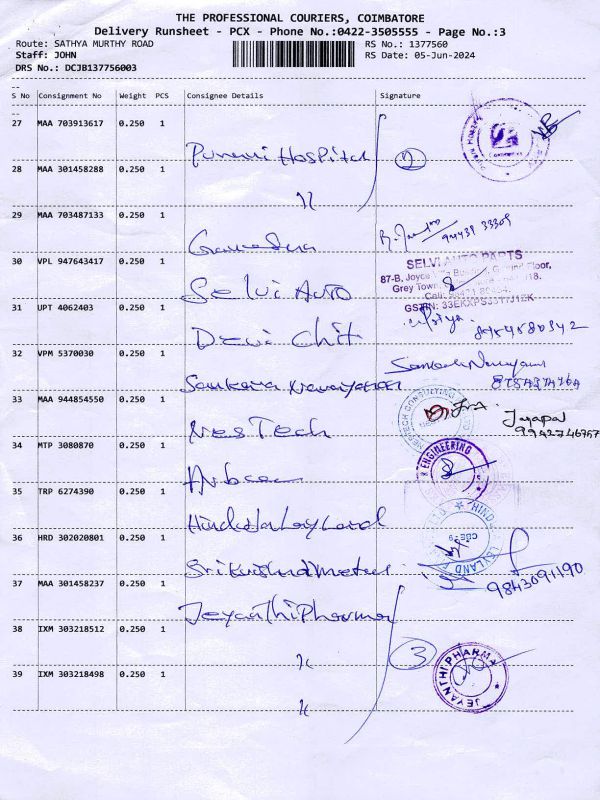 THE PROFESSIONAL COURIERS, COIMBATORE
Delivery Runsheet - PCX - Phone No.:0422-3505555 - Page No.:3
Route: SATHYA MURTHY ROAD
RS No.: 1377560
Staff: JOHN
RS Date: 05-Jun-2024
DRS No.: DCJB137756003
S No Consignment No Weight PCS Consignee Details Signature
27 MAA 703913617 0.250 1
Hospital 2
28 MAA 301458288 0.250 1
"
29 MAA 703487133 0.250 1
94431 33309
30 VPL 947643417 0.250 1
SELVI AUTO PARTS
Selvi Auto
31 UPT 4062403 0.250 1
Devi Chit
32 VPM 5370030 0.250 1
Sankara Narayanan
33 MAA 944854550 0.250 1
NesTech
Jeyapal
34 MTP 3080870 0.250 1
ENGINEERING
35 TRP 6274390 0.250 1
Hinduja Leyland
36 HRD 302020801 0.250 1
9843091190
37 MAA 301458237 0.250 1
Jeyanthi Pharma
38 IXM 303218512 0.250 1
" 3
JEYANTHI PHARMA
39 IXM 303218498 0.250 1
"